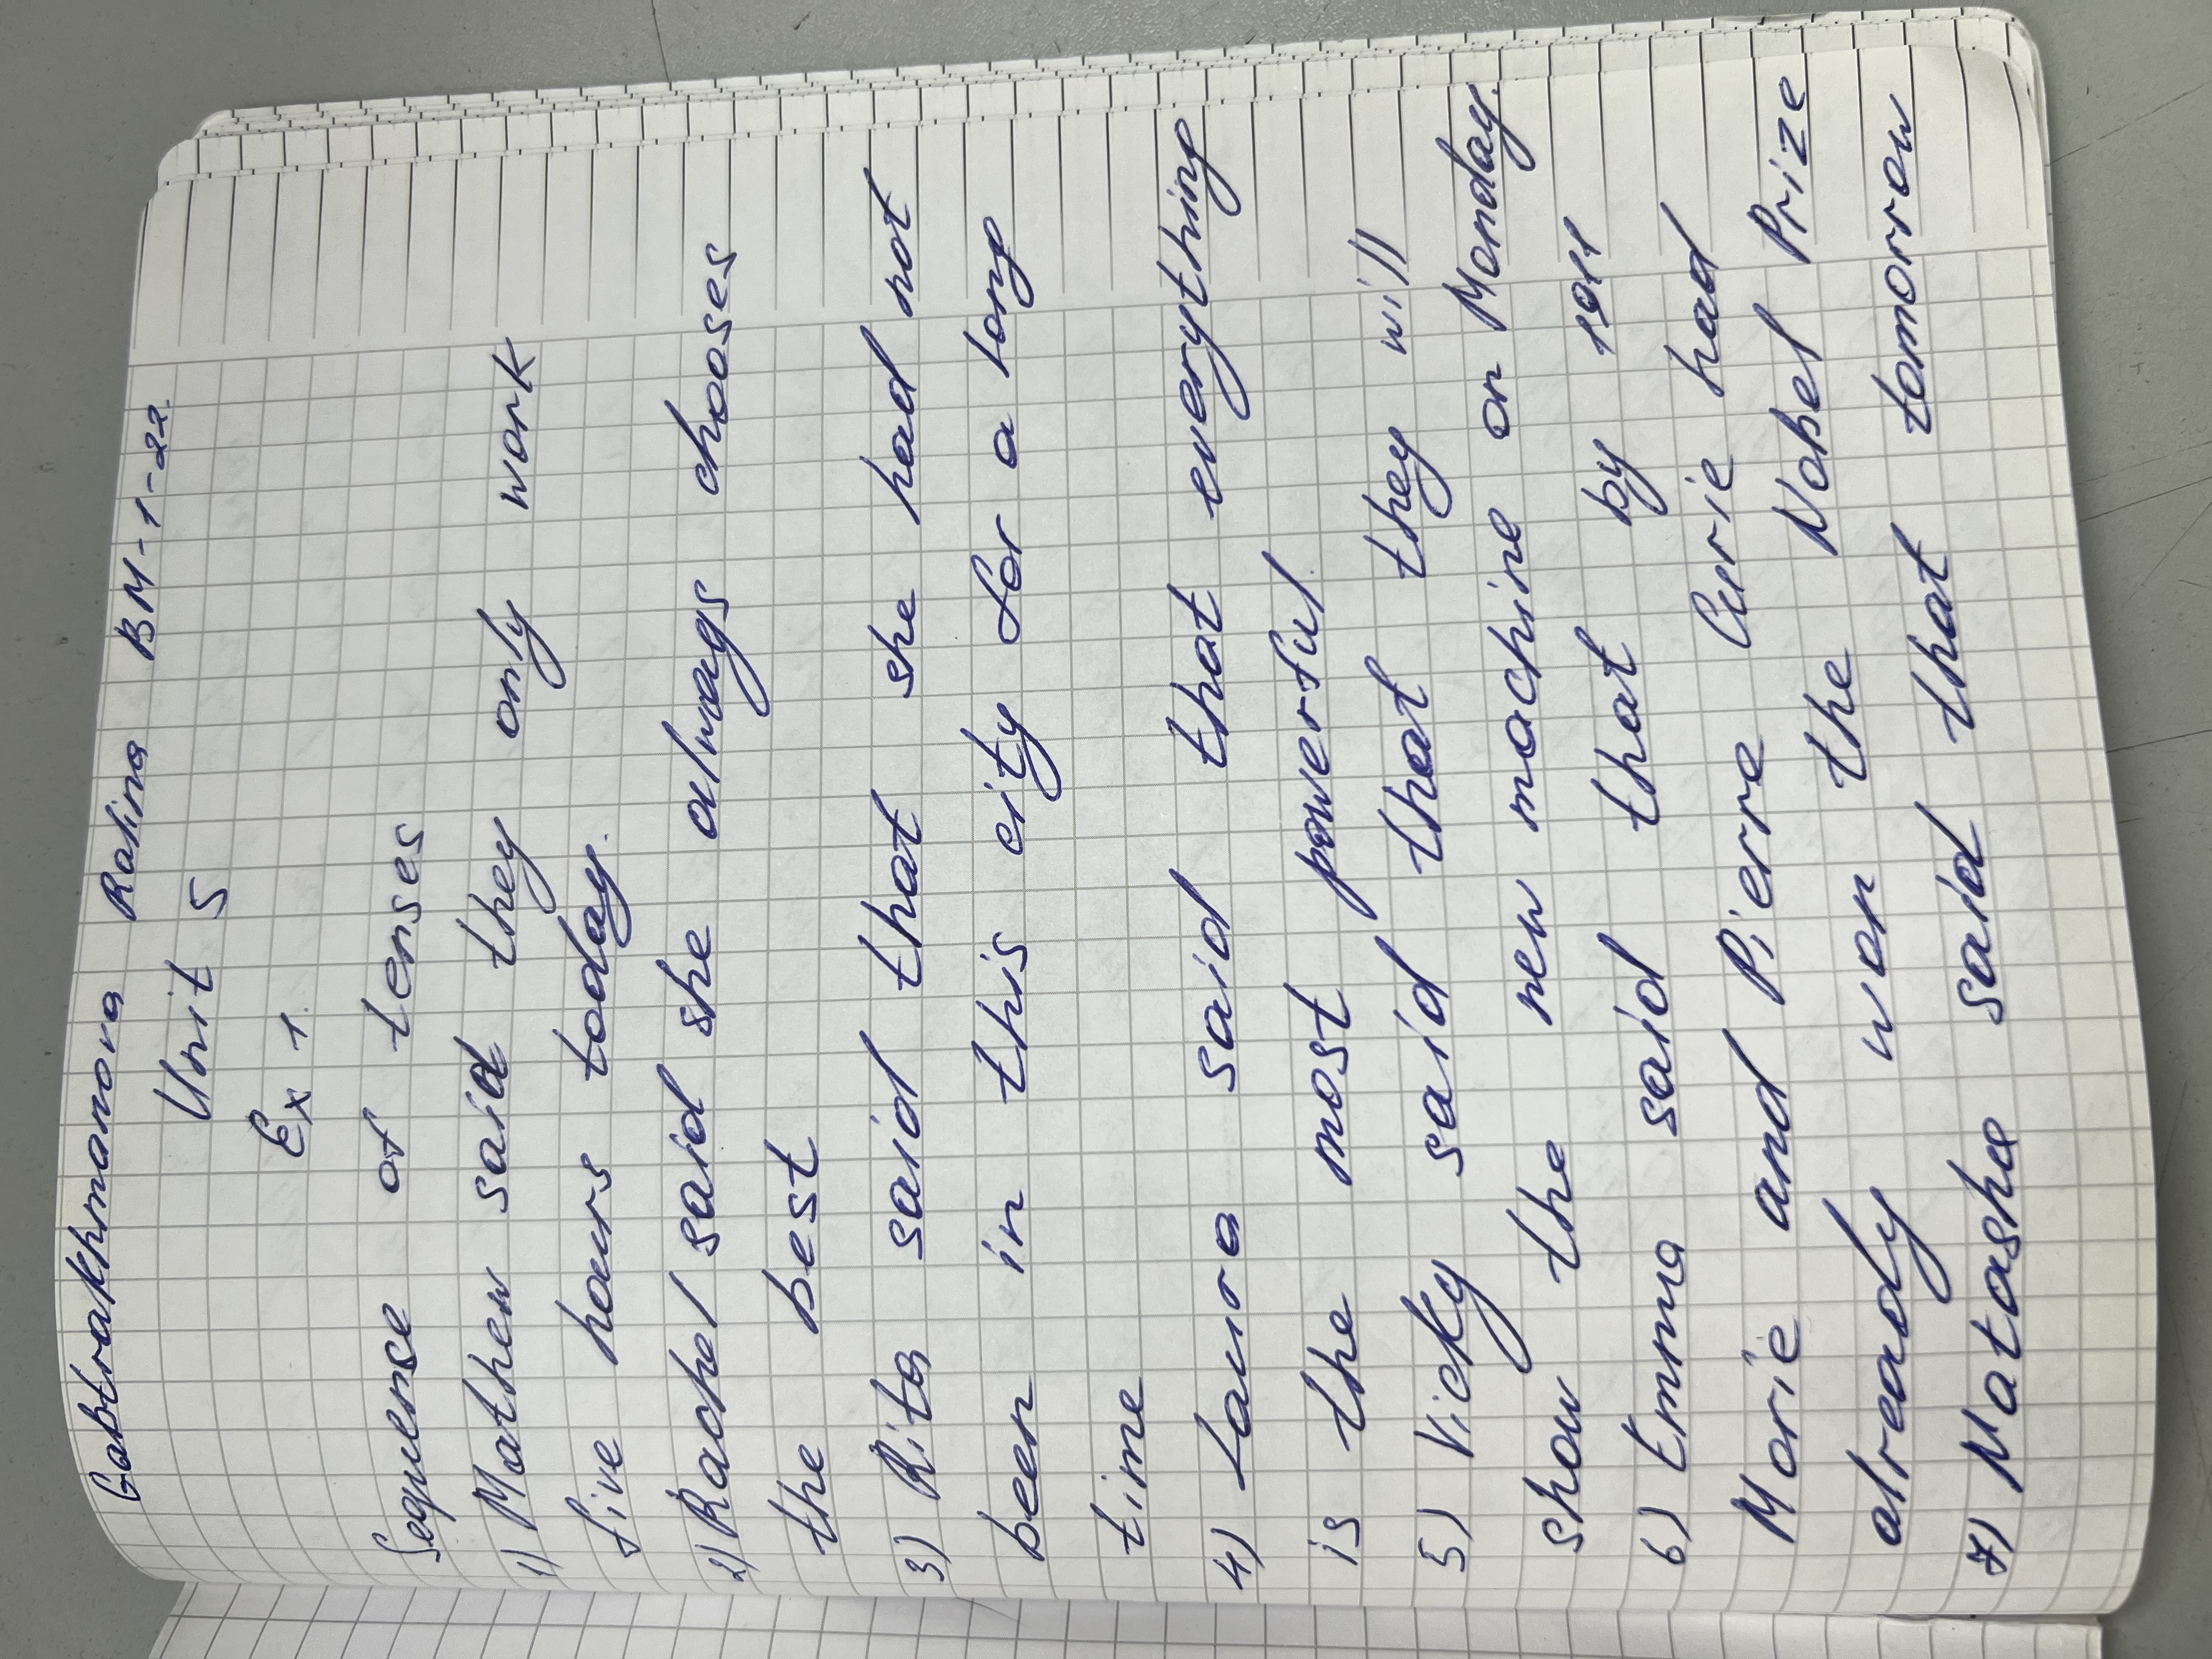 Gabtrakhmanova Ralina BM-1-22.
Unit 5
Ex 1.
Sequense of tenses
1) Mathew said they only work
five hours today.
2) Rachel said she always chooses
the best
3) Rita said that she had not
been in this city for a long
time
4) Laura said that everything
is the most powerful
5) Vicky said that they will
show the new machine on Monday.
6) Emma said that by 1911
Marie and Pierre Curie had
already won the Nobel Prize
7) Natasha said that tomorrow